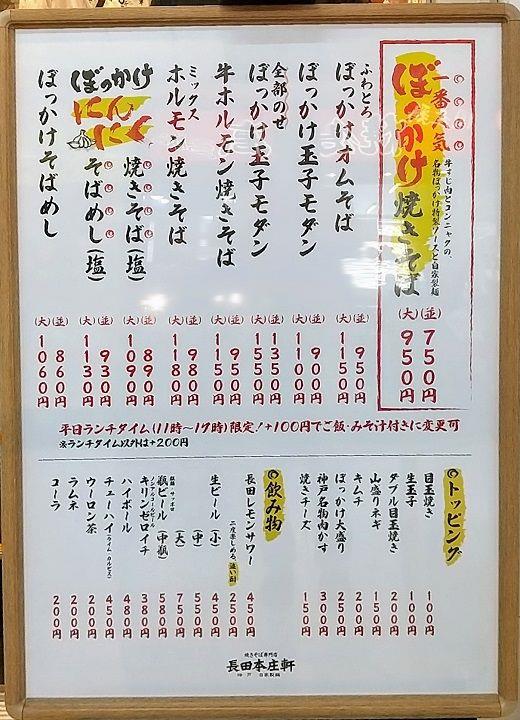 一番人気
ぼっかけ焼きそば
牛すじ肉とコンニャクの、
名物ぼっかけ特製ソースと自家製麺
(並)750円
(大)950円
ふわとろ
ぼっかけオムそば
(並)950円
(大)1150円
ぼっかけ玉子モダン
(並)900円
(大)1100円
全部のせ
ぼっかけ玉子モダン
(並)1350円
(大)1550円
牛ホルモン焼きそば
(並)950円
(大)1150円
ミックス
ホルモン焼きそば
(並)980円
(大)1180円
ぼっかけ
にんにく
焼きそば(塩)
(並)890円
(大)1090円
そばめし(塩)
(並)930円
(大)1130円
ぼっかけそばめし
(並)860円
(大)1060円
平日ランチタイム(11時〜17時)限定!+100円でご飯・みそ汁付きに変更可
※ランチタイム以外は+200円
トッピング
目玉焼き 100円
生玉子 100円
ダブル目玉焼き 200円
山盛りネギ 150円
キムチ 200円
ぼっかけ大盛り 250円
神戸名物肉かす 300円
焼きチーズ 150円
飲み物
長田レモンサワー 450円
二度楽しめる、追い酎 250円
生ビール(小) 450円
(中) 550円
(大) 750円
瓶ビール(中瓶) 580円
ノンアルコールビール
キリンゼロイチ 380円
ハイボール 480円
チューハイ(ライム・カルピス) 450円
ウーロン茶 200円
ラムネ 200円
コーラ 200円
焼きそば専門店
長田本庄軒
神戸 自家製麺